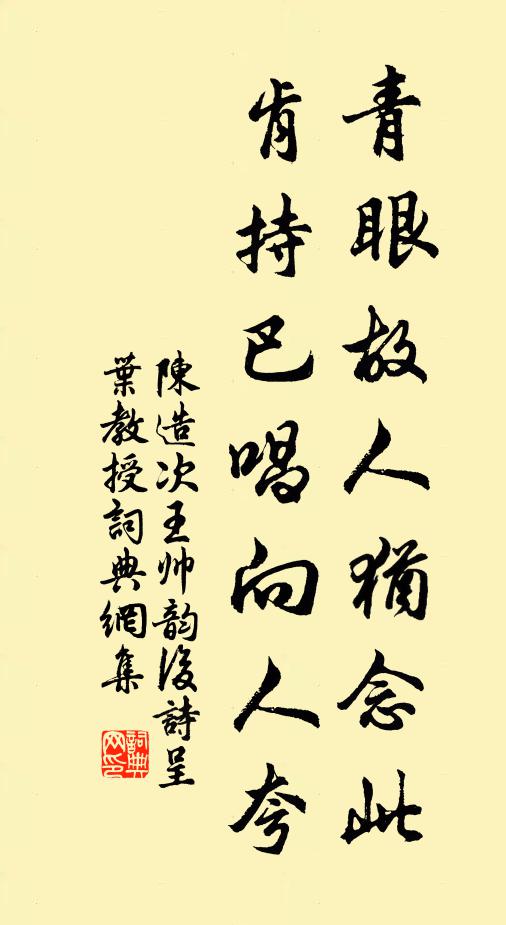 青眼故人猶念此
肯持巴唱向人夸
陳造次王帅韵後詩呈
葉教授詞典網集
詞典网印